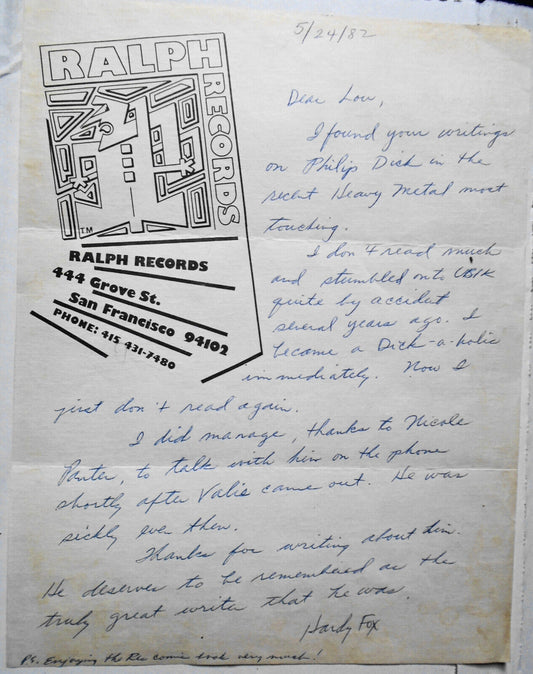 5/24/82
RALPH
RECORDS
TM
RALPH RECORDS
444 Grove St.
San Francisco 94102
PHONE: 415 431-7480
Dear Lou,
I found your writings
on Philip Dick in the
recent Heavy Metal most
touching.
I don't read much
and stumbled onto UBIK
quite by accident
several years ago. I
became a Dick-a-holic
immediately. Now I
just don't read again.
I did manage, thanks to Nicole
Panter, to talk with him on the phone
shortly after Valis came out. He was
sickly even then.
Thanks for writing about him.
He deserves to be remembered as the
truly great writer that he was.
Hardy Fox
PS. Enjoying the Rec comic book very much!